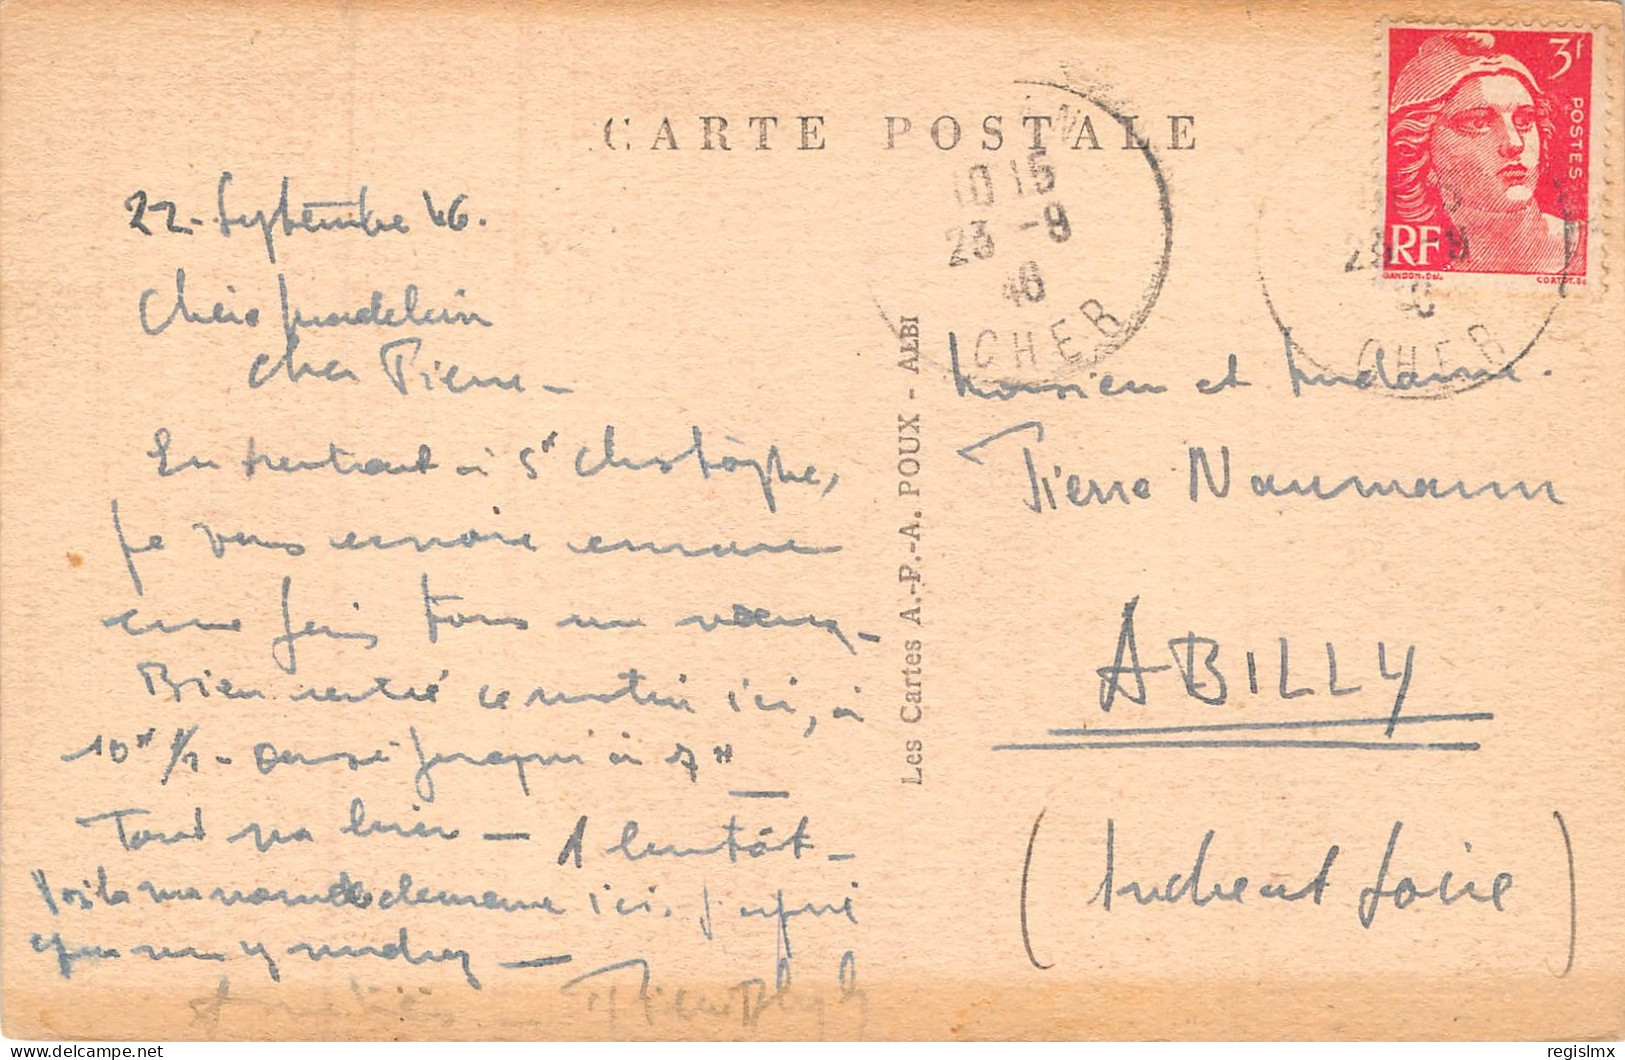 CARTE POSTALE
3f
POSTES
RF
GANDON.Del.
CORTOT.Sc
10 15
23 -9
46
CHER
CHER
22. Septembre 46.
Chère Madeleine
Cher Pierre -
En rentrant à St Christophe,
Je vous envoie encore
une fois tous un
Bien rentré ce matin ici, à
10H 1/2 - jusqu'à 7H
Tout va bien - A bientôt -
Voilà ma ici. J'espère
que
Amitiés - Pierre
Les Cartes A.-P.-A. POUX - ALBI
Monsieur et Madame.
Pierre Naumann
ABILLY
(Indre et Loire)
regislmx
delcampe.net